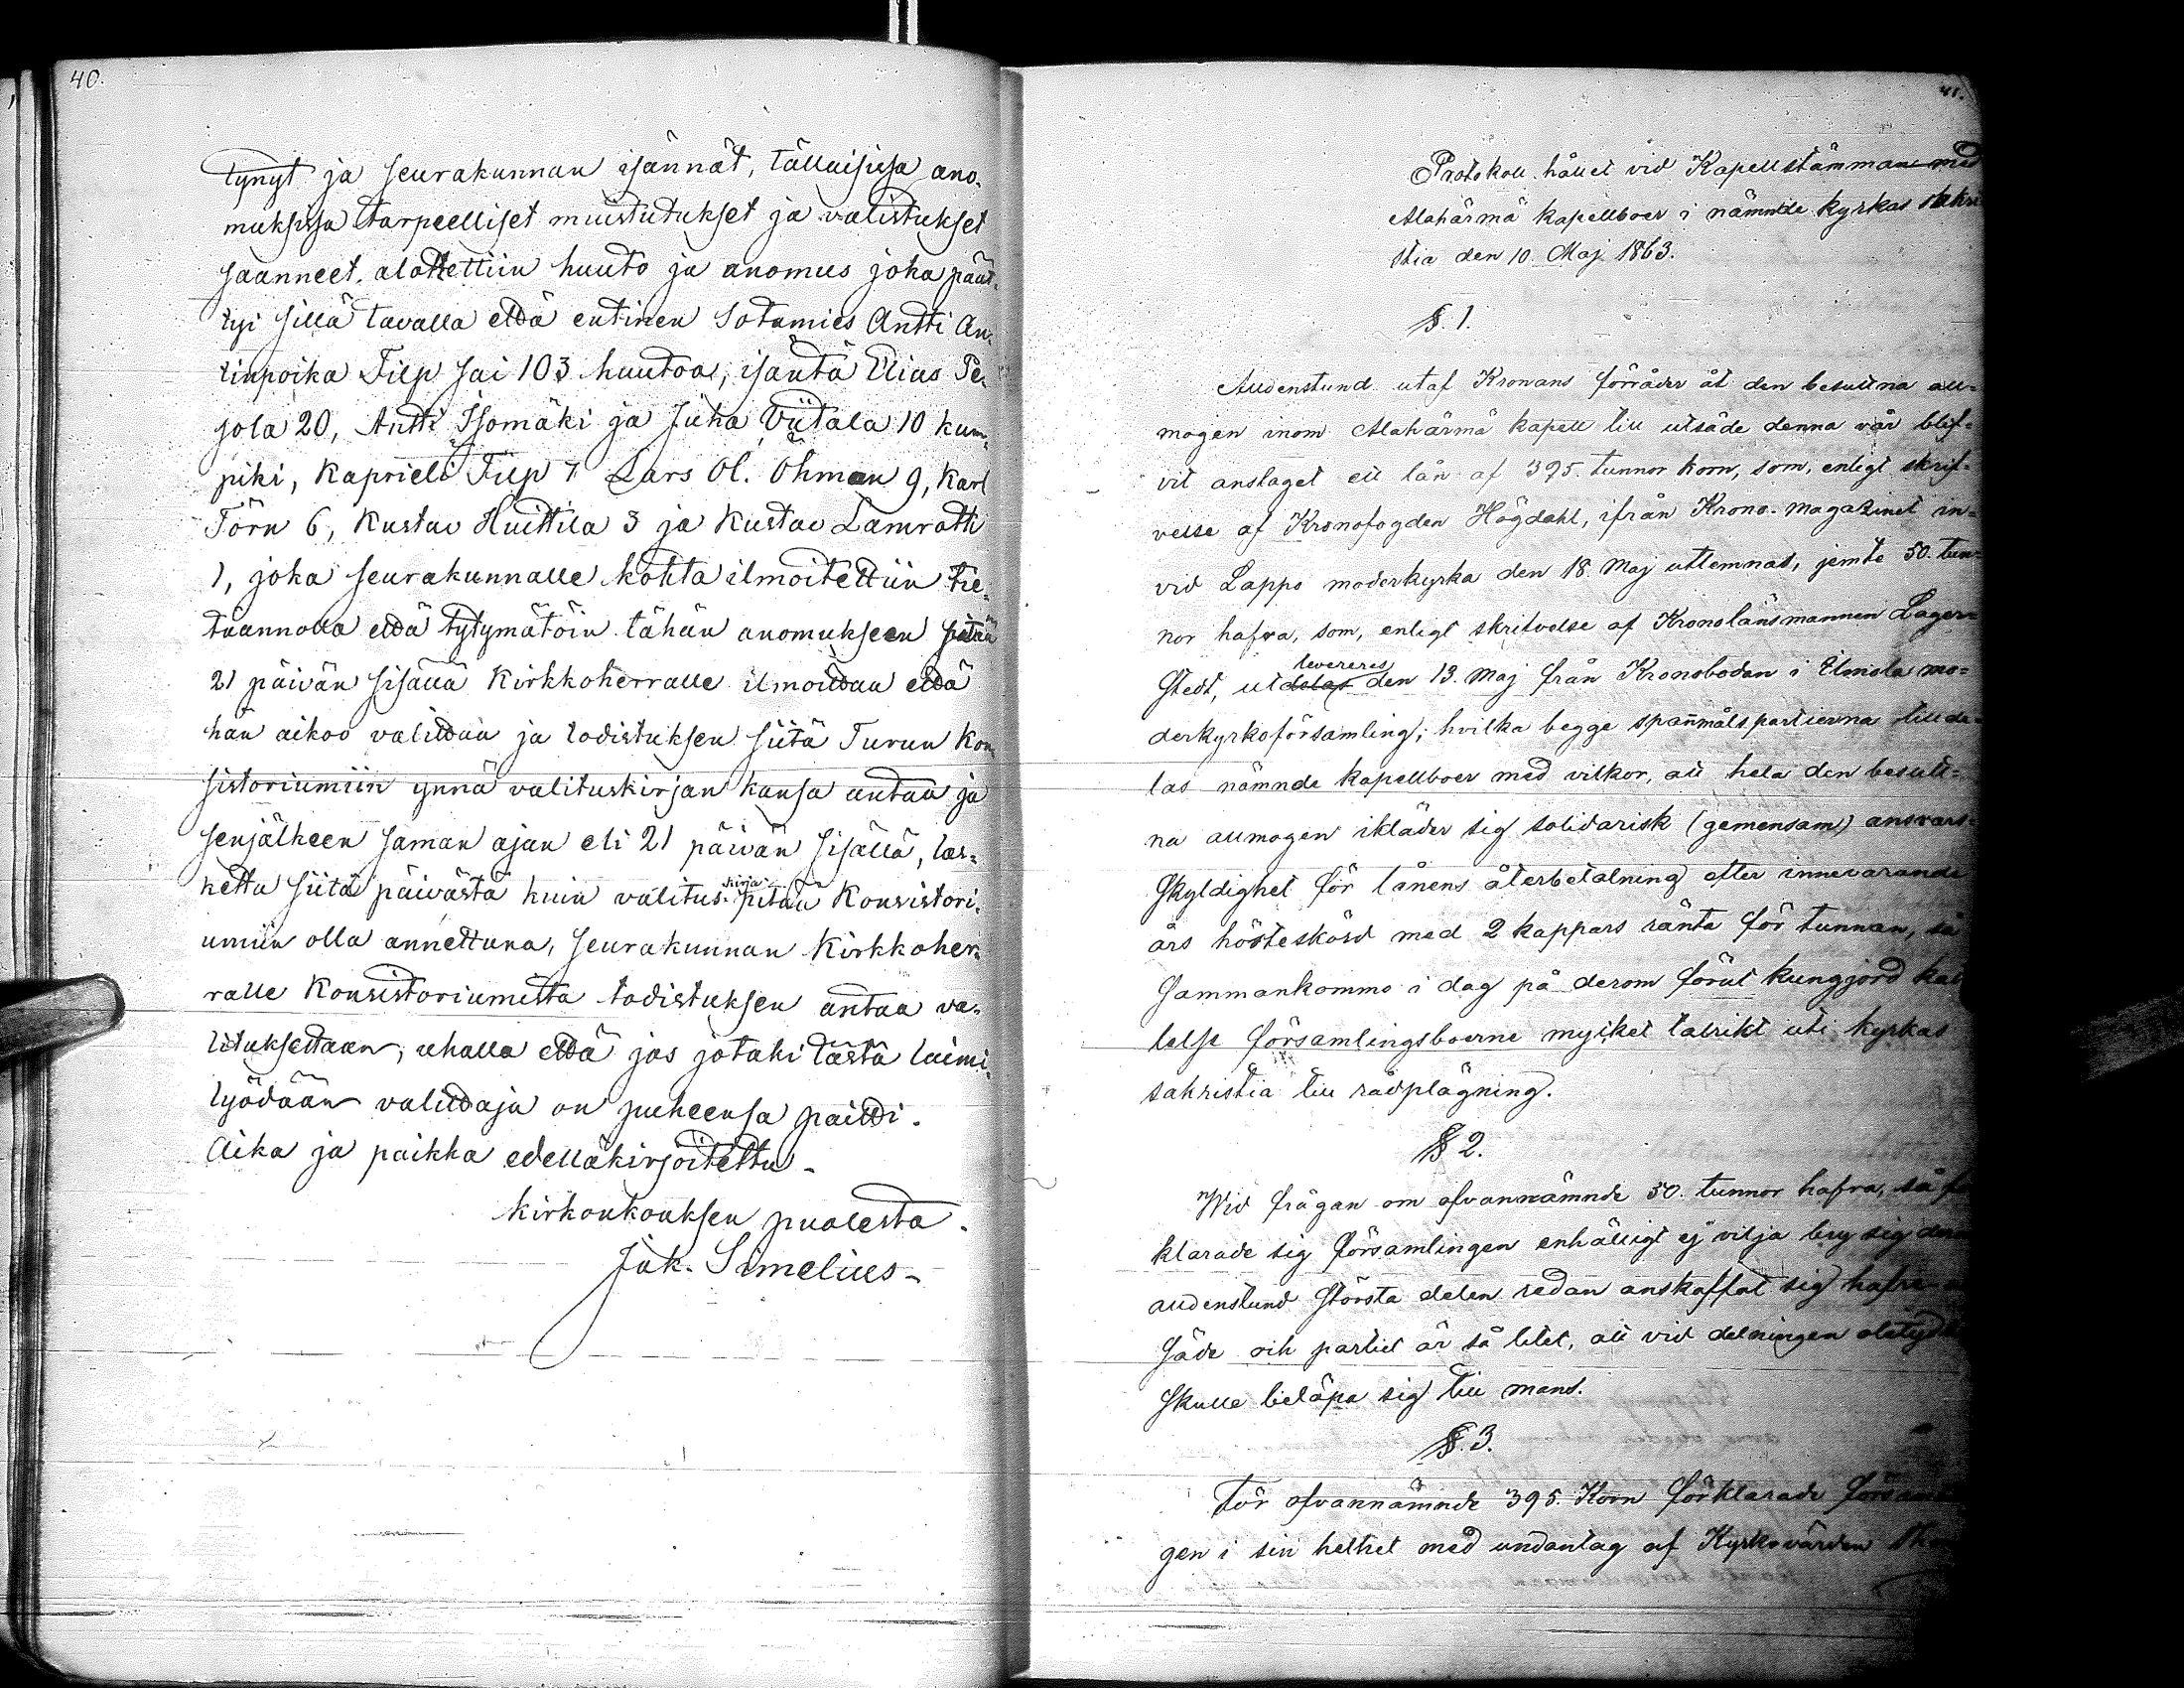 40.
tynyt ja seurakunnan isännät, tällaisissa ano-
muksissa tarpeelliset muistutukset ja valistukset
saanneet, alottettiin huuto ja anomus joka päät-
tyi sillä tavalla että entinen Sotamies Antti An-
tinpoika Filp sai 103 huutoa, isäntä Elias Pe-
sola 20, Antti Isomäki ja Juha Viitala 10 kum-
piki, Kaprieli Filp 7 Lars Ol. Öhman 9, Karl
Törn 6, Kustav Huittila 3 ja Kustav Lamratti
1, joka seurakunnalle kohta ilmoitettiin tie-
tuannolla että tytymätöin tähän anomukseen pitää
21 päivän sisällä Kirkkoherralle ilmoittaa että
hän aikoo valittaa ja todistuksen siitä Turun Kon
sistoriumiin ynnä valituskirjan kansa antaa ja
senjälkeen saman ajan eli 21 päivän sisällä, las-
kettu siitä päivästä kuin valitus-kirja pitää Konsistori-
umiin olla annettuna, seurakunnan Kirkkoher-
ralle Konsistoriumista todistuksen antaa va-
lituksettaan, uhalla että jos jotaki tästä laimi-
lyödään valittaja on puheensa paitti.
Aika ja paikka edelläkirjoitettu.
Kirkonkouksen puolesta.
Jak. Simelius.
41.
Protokoll hållet vid Kapellstämman med
Alahärmä kapellboer i nämnde kyrkas sakri
stia den 10 Maj 1863.
§. 1.
Alldenstund utaf Kronans förråder åt den besuttna all-
mogen inom Alahärmä kapell till utsäde denna vår blif-
vit anslaget ett lån af 395 tunnor korn, som, enligt skrif-
velse af Kronofogden Högdahl, ifrån Krono-magazinet in-
vid Lappo moderkyrka den 18. Maj utlemnas, jemte 50. tun-
nor hafra, som, enligt skrifvelse af Kronolänsmannen Lager-
stedt, utdelas levereres den 13. Maj från Kronoboden i Ilmola mo-
derkyrkoförsamling; hvilka begge spanmålspartierna tillde-
las nämnde kapellboer med vilkor, att hela den besutt-
na allmogen ikläder sig solidarisk (gemensam) ansvars-
skyldighet för lånens återbetalning efter innevarande
års hösteskörd med 2 kappars ränta för tunnan, så
sammankommo i dag på derom förut kungjord kal
lelse församlingsboerne mycket talrikt uti kyrkas
sakristia till rådplägning.
§ 2.
Wid frågan om ofvannämnde 50. tunnor hafra, så för
klarade sig församlingen enhälligt ej vilja bry sig derom
alldenstund största delen redan anskaffat sig hafre
säde och partiet är så litet, att vid delningen obetydligt
skulle belöpa sig till mans.
§. 3.
För ofvannämnde 395. Korn förklarade församlin
gen i sin helhet med undantag af Kyrkovärden